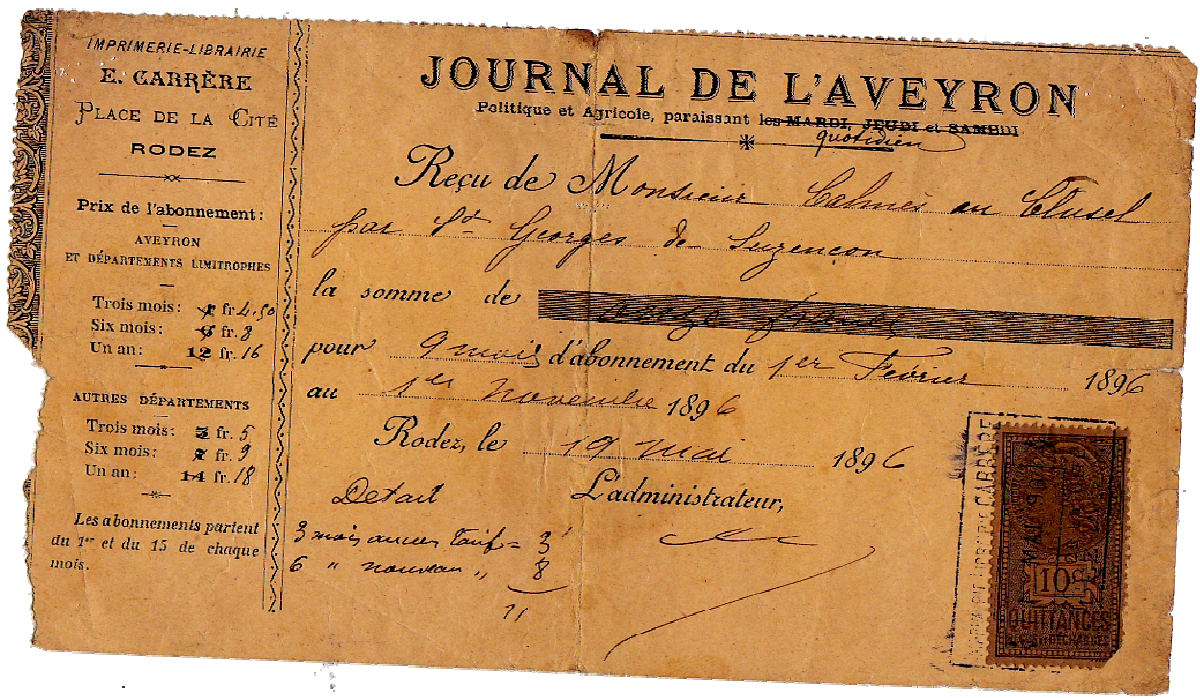 IMPRIMERIE-LIBRAIRIE
E. CARRÈRE
PLACE DE LA CITÉ
RODEZ
Prix de l'abonnement:
AVEYRON
ET DÉPARTEMENTS LIMITROPHES
Trois mois: fr 4.50
Six mois: fr. 8
Un an: 12 fr. 16
AUTRES DÉPARTEMENTS
Trois mois: fr. 5
Six mois: fr. 9
Un an: 14 fr. 18
Les abonnements partent
du 1er et du 15 de chaque
mois.
JOURNAL DE L'AVEYRON
Politique et Agricole, paraissant les MARDI, JEUDI et SAMEDI
quotidien
Reçu de Monsieur Calmès au Clusel
par St Georges de Luzençon
la somme de onze francs
pour 9 mois d'abonnement du 1er Février 1896
au 1er novembre 1896
Rodez, le 19 mai 1896
L'administrateur,
Detail
3 mois ancien Tarif = 3
6 " nouveau " 8
11
CARRÈRE
10c
QUITTANCES